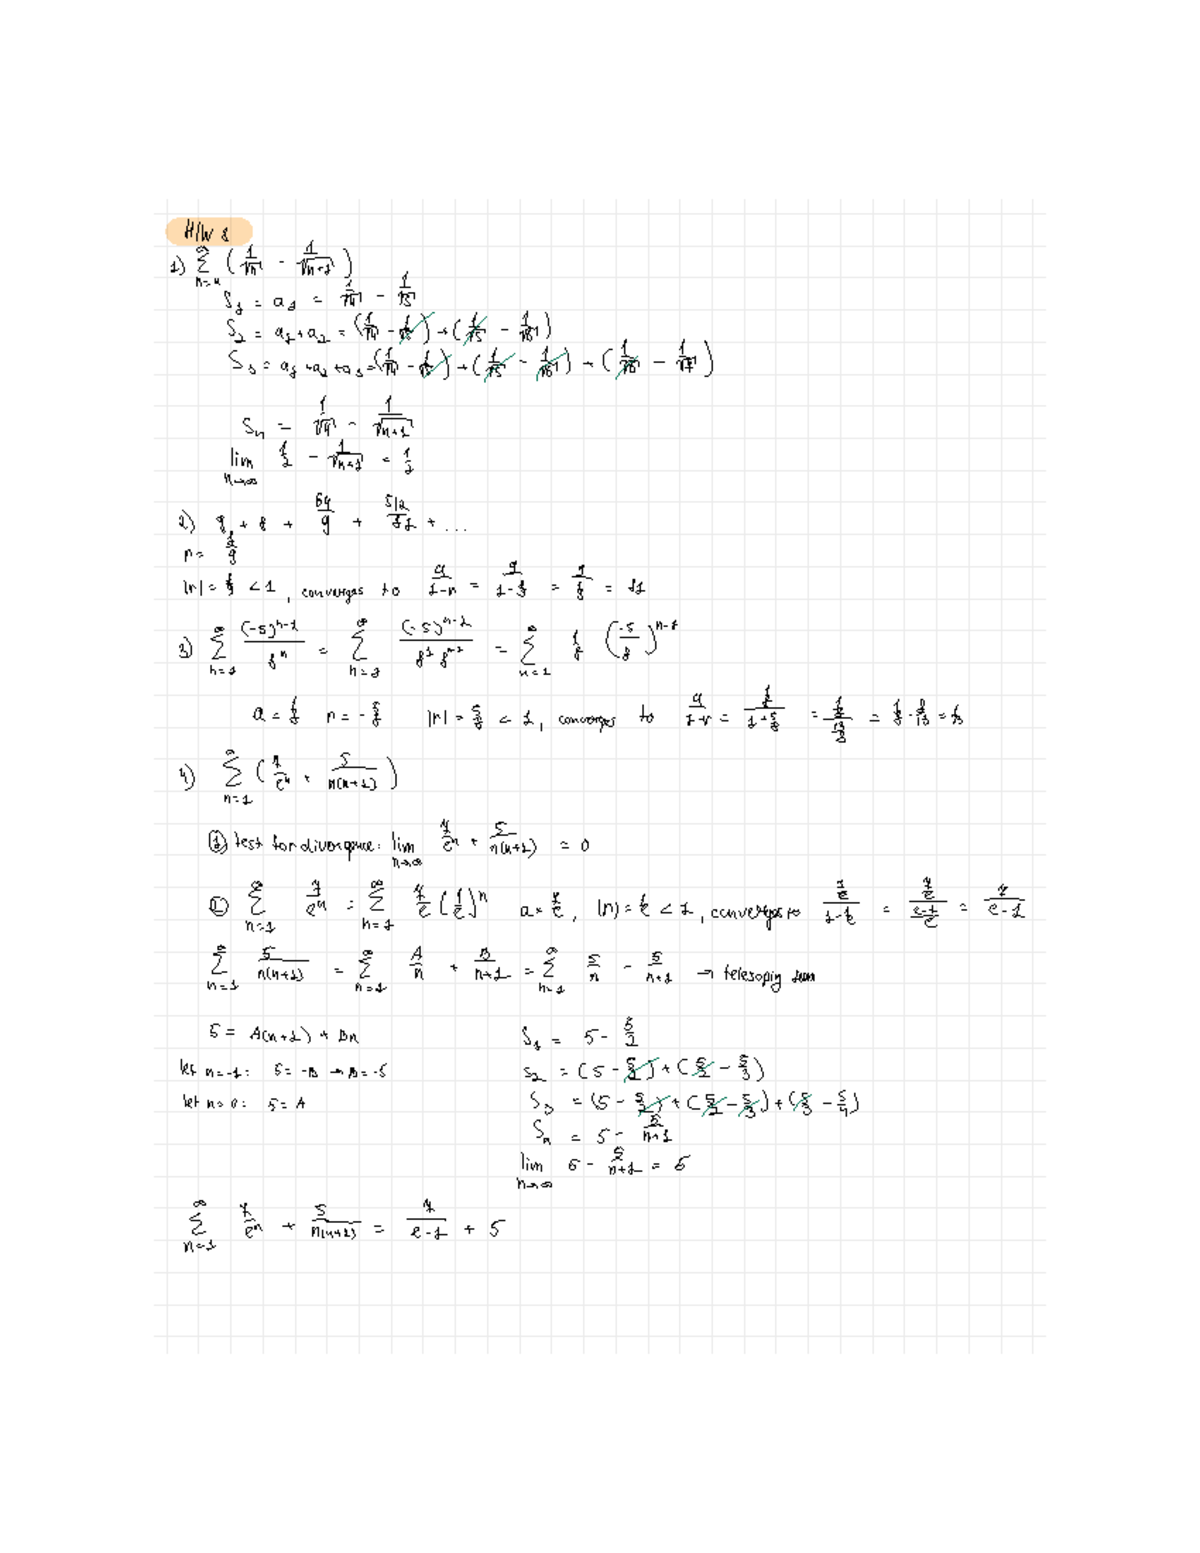 H/W 8
1) ∑_{n=4}^{∞} (1/√n - 1/√(n+1))
S₁ = a₁ = 1/√4 - 1/√5
S₂ = a₁ + a₂ = (1/√4 - 1/√5) + (1/√5 - 1/√6)
S₃ = a₁ + a₂ + a₃ = (1/√4 - 1/√5) + (1/√5 - 1/√6) + (1/√6 - 1/√7)
Sₙ = 1/√4 - 1/√(n+1)
lim_{n→∞} 1/2 - 1/√(n+1) = 1/2
2) 9 + 8 + 64/9 + 512/81 + ...
r = 8/9
|r| = 8/9 < 1, converges to a/(1-r) = 9/(1-8/9) = 9/(1/9) = 81
3) ∑_{n=1}^{∞} (-5)^{n-1}/8^n = ∑_{n=1}^{∞} (-5)^{n-1}/(8^1 8^{n-1}) = ∑_{n=1}^{∞} 1/8 (-5/8)^{n-1}
a = 1/8 r = -5/8 |r| = 5/8 < 1, converges to a/(1-r) = (1/8)/(1+5/8) = (1/8)/(13/8) = 1/8 · 8/13 = 1/13
4) ∑_{n=1}^{∞} (7/e^n + 5/(n(n+1)))
① test for divergence: lim_{n→∞} 7/e^n + 5/(n(n+1)) = 0
② ∑_{n=1}^{∞} 7/e^n = ∑_{n=1}^{∞} 7/e (1/e)^n a = 7/e, |r| = 1/e < 1, converges to (7/e)/(1-1/e) = (7/e)/((e-1)/e) = 7/(e-1)
∑_{n=1}^{∞} 5/(n(n+1)) = ∑_{n=1}^{∞} A/n + B/(n+1) = ∑_{n=1}^{∞} 5/n - 5/(n+1) → telesopig sum
5 = A(n+1) + Bn
let n=-1: 5 = -B → B = -5
let n=0: 5 = A
S₁ = 5 - 5/2
S₂ = (5 - 5/2) + (5/2 - 5/3)
S₃ = (5 - 5/2) + (5/2 - 5/3) + (5/3 - 5/4)
Sₙ = 5 - 5/(n+1)
lim_{n→∞} 5 - 5/(n+1) = 5
∑_{n=1}^{∞} 7/e^n + 5/(n(n+1)) = 7/(e-1) + 5